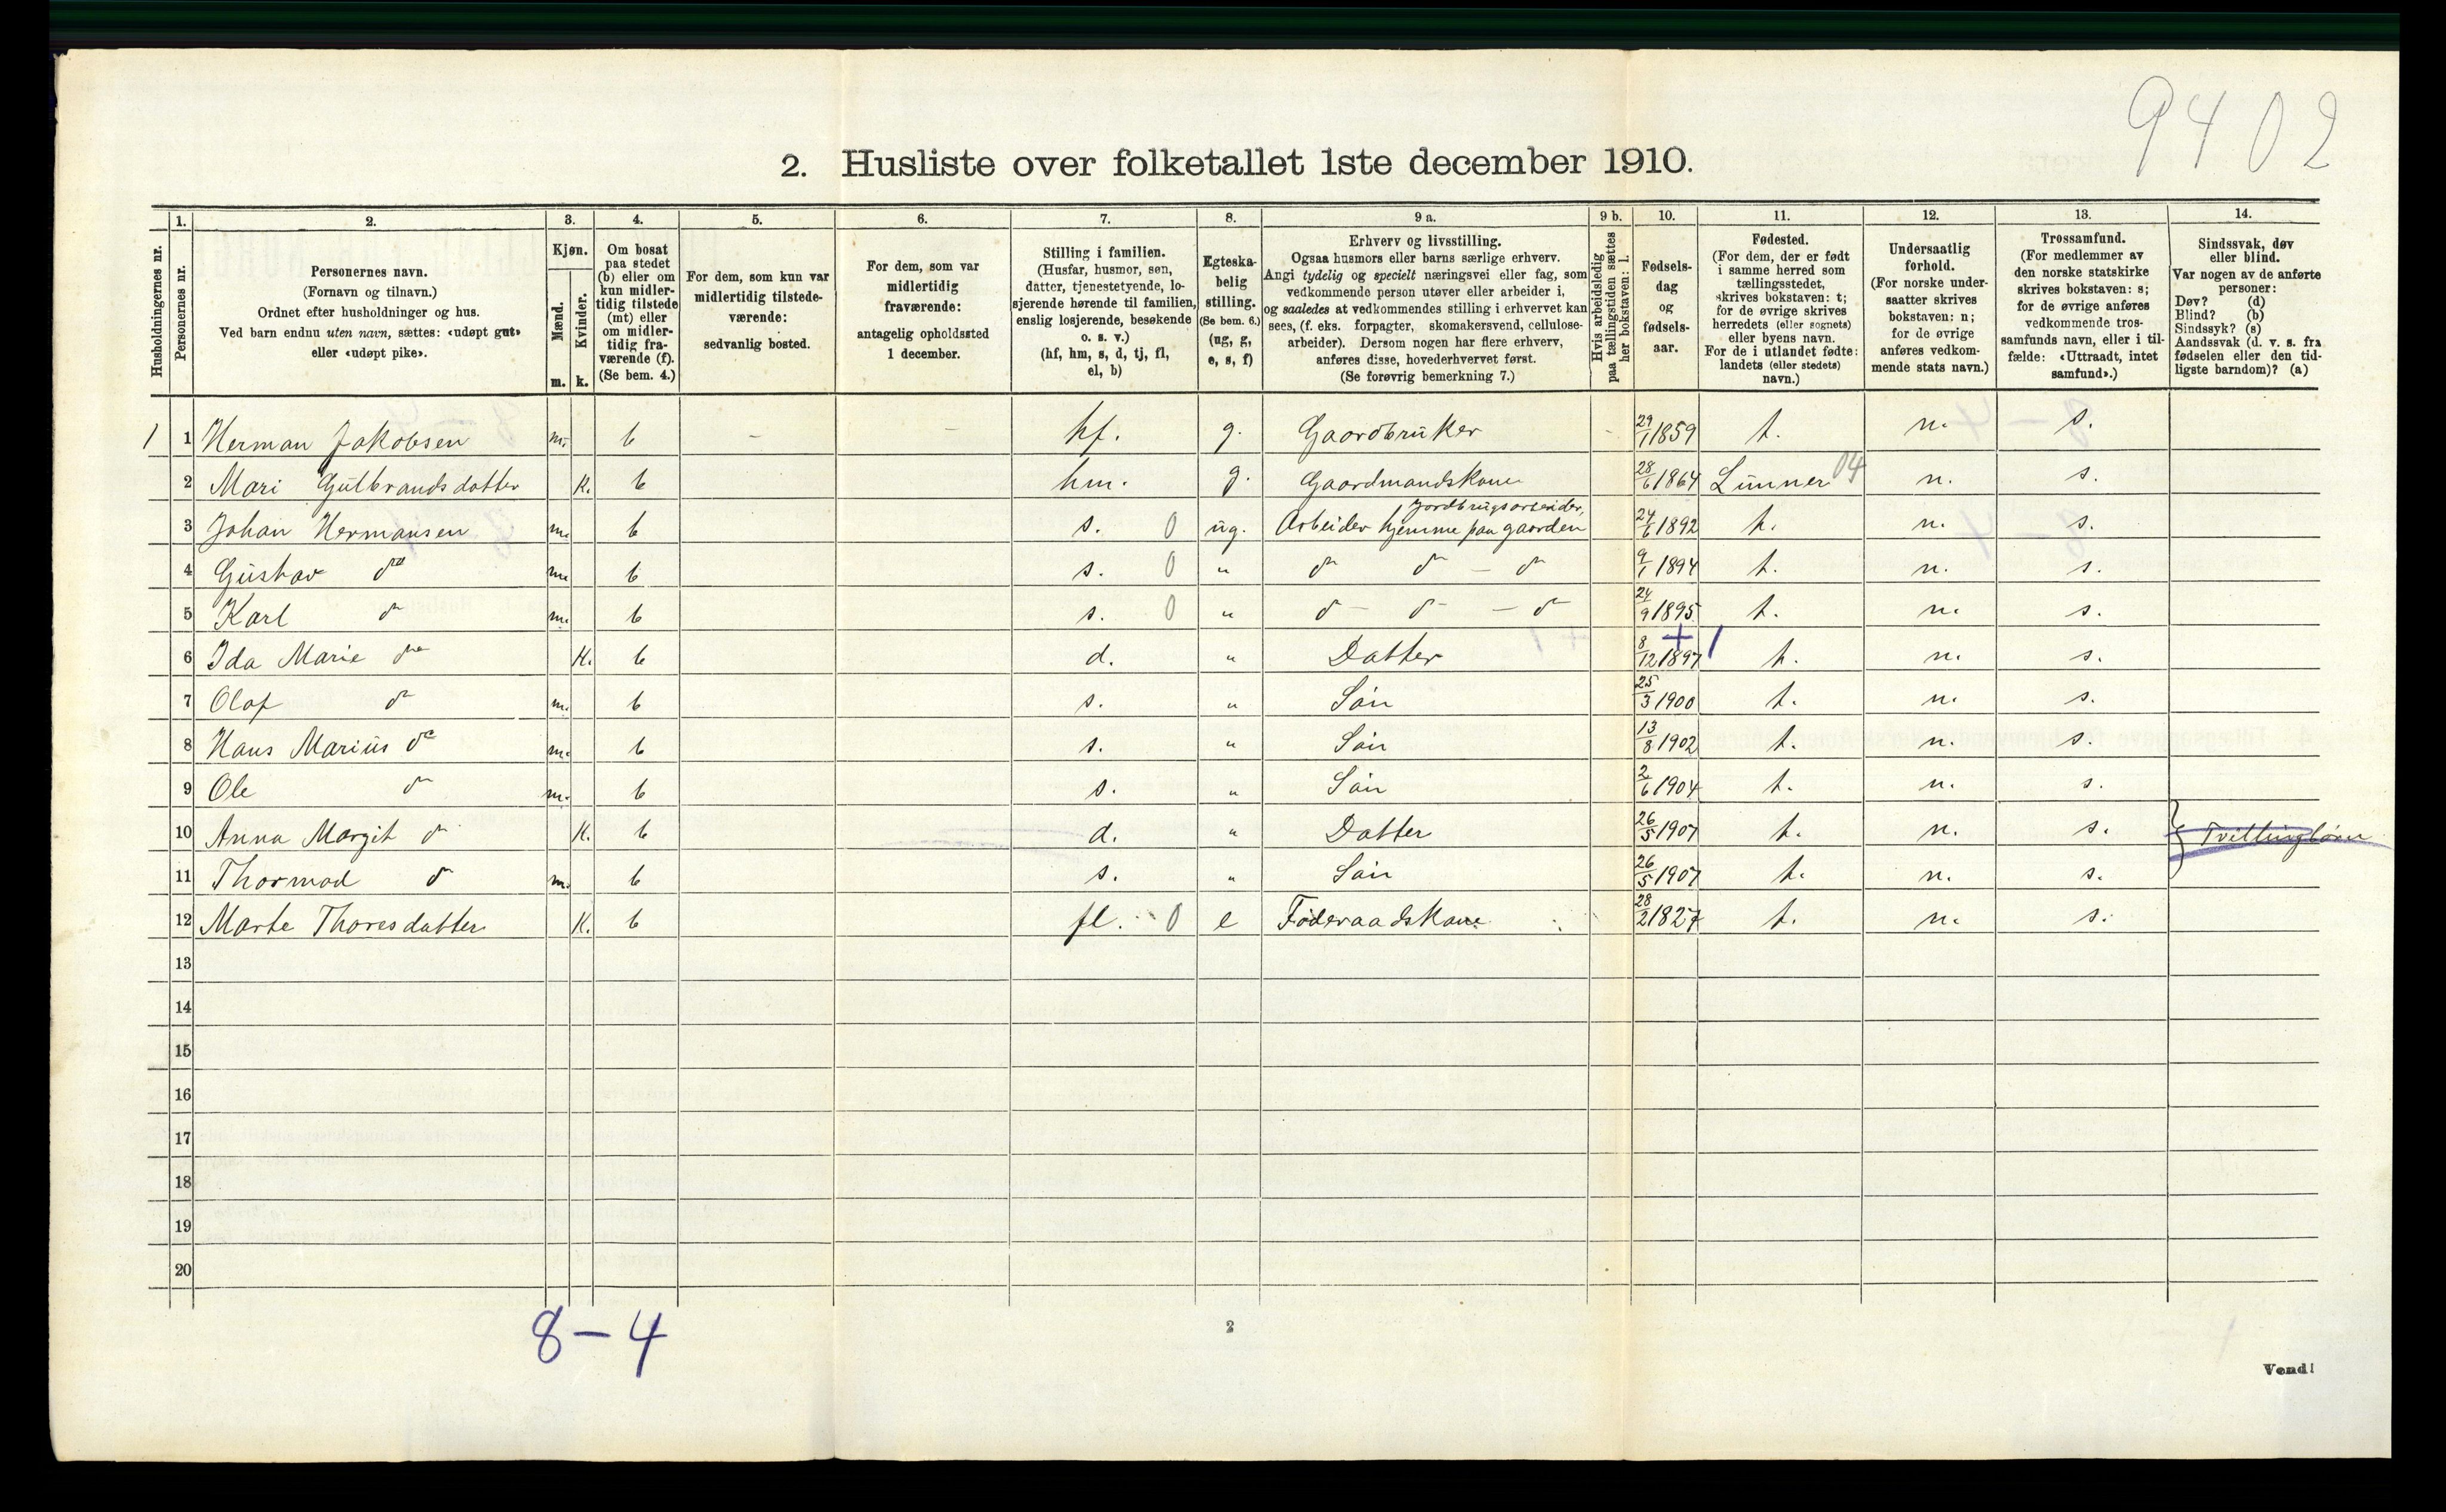 9402
2. Husliste over folketallet 1ste december 1910.
Husholdningernes nr.
1.
Personernes nr.
2.
Personernes navn.
(Fornavn og tilnavn.)
Ordnet efter husholdninger og hus.
Ved barn endnu uten navn, sættes: «udøpt gut»
eller «udøpt pike».
3.
Kjøn.
Mænd.
Kvinder.
m. k.
4.
Om bosat
paa stedet
(b) eller om
kun midler-
tidig tilstede
(mt) eller
om midler-
tidig fra-
værende (f).
(Se bem. 4.)
5.
For dem, som kun var
midlertidig tilstede-
værende:
sedvanlig bosted.
6.
For dem, som var
midlertidig
fraværende:
antagelig opholdssted
1 december.
7.
Stilling i familien.
(Husfar, husmor, søn,
datter, tjenestetyende, lo-
sjerende hørende til familien,
enslig losjerende, besøkende
o. s. v.)
(hf, hm, s, d, tj, fl,
el, b)
8.
Egteska-
belig
stilling.
(Se bem. 6.)
(ug, g,
e, s, f)
9 a.
Erhverv og livsstilling.
Ogsaa husmors eller barns særlige erhverv.
Angi tydelig og specielt næringsvei eller fag, som
vedkommende person utøver eller arbeider i,
og saaledes at vedkommendes stilling i erhvervet kan
sees, (f. eks. forpagter, skomakersvend, cellulose-
arbeider). Dersom nogen har flere erhverv,
anføres disse, hovederhvervet først.
(Se forøvrig bemerkning 7.)
9 b.
Hvis arbeidsledig
paa tællingstiden sættes
her bokstaven: l.
10.
Fødsels-
dag
og
fødsels-
aar.
11.
Fødested.
(For dem, der er født
i samme herred som
tællingsstedet,
skrives bokstaven: t;
for de øvrige skrives
herredets (eller sognets)
eller byens navn.
For de i utlandet fødte:
landets (eller stedets)
navn.)
12.
Undersaatlig
forhold.
(For norske under-
saatter skrives
bokstaven: n;
for de øvrige
anføres vedkom-
mende stats navn.)
13.
Trossamfund.
(For medlemmer av
den norske statskirke
skrives bokstaven: s;
for de øvrige anføres
vedkommende tros-
samfunds navn, eller i til-
fælde: «Uttraadt, intet
samfund».)
14.
Sindssvak, døv
eller blind.
Var nogen av de anførte
personer:
Døv? (d)
Blind? (b)
Sindssyk? (s)
Aandssvak (d. v. s. fra
fødselen eller den tid-
ligste barndom)? (a)
1 1 Herman Jakobsen m. b - - hf. g. Gaardbruker - 29/1 1859 t. n. s.
2 Mari Gulbrandsdatter k. b hm. g. Gaardmandskone 28/6 1864 Lunner 04 n. s.
Jordbrugsarbeider,
3 Johan Hermansen m. b s. 0 ug. Arbeider hjemme paa gaarden 24/6 1892 t. n. s.
4 Gustav do m. b s. 0 " do do - do 9/1 1894 t. n. s.
5 Karl do m. b s. 0 " do - do - do 24/9 1895 t. n. s.
+ 1
6 Ida Marie do k. b d. " Datter 8/12 1897 t. n. s.
7 Olaf do m. b s. " Søn 25/3 1900 t. n. s.
8 Hans Marius do m. b s. " Søn 13/8 1902 t. n. s.
9 Ole do m. b s. " Søn 2/6 1904 t. n. s.
10 Anna Margit do k. b d. " Datter 26/5 1907 t. n. s. } Tvillingbørn
11 Thormod do m. b s. " Søn 26/5 1907 t. n. s.
12 Marte Thoresdatter k. b fl. 0 e Føderaadskone 28/2 1827 t. n. s.
13
14
15
16
17
18
19
20
8-4
2
Vend!